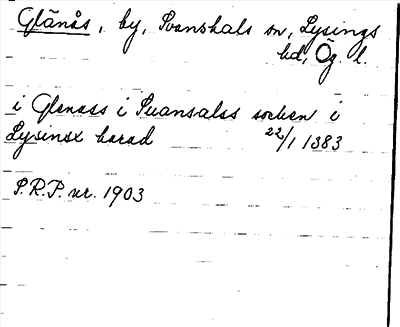 Glänås, by, Svanshals sn, Lysings
hd, Ög. l.
i Glenass i Suansalss sochen i
Lysinsx harad 22/1 1383
S.R.P. nr. 1903